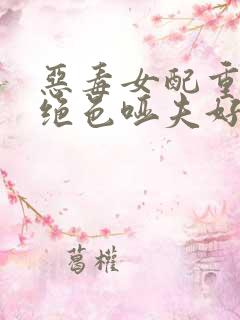 惡毒女配重
绝色哑夫好
葛權